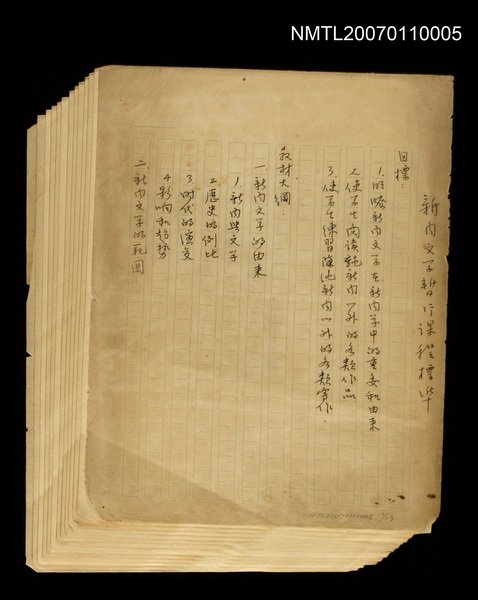 NMTL20070110005
新聞文學暫行課程標準
目標：
1. 明瞭新聞文學在新聞學中的重要和由來
2. 使學生閱讀純新聞以外的各類作品
3. 使學生練習除純新聞以外的各類寫作．
教材大綱：
一. 新聞文學的由來
1 新聞與文學
2 歷史的例比
3 時代的演变
4 影响和趋势
二. 新聞文學的範圍
NMTL20070110005